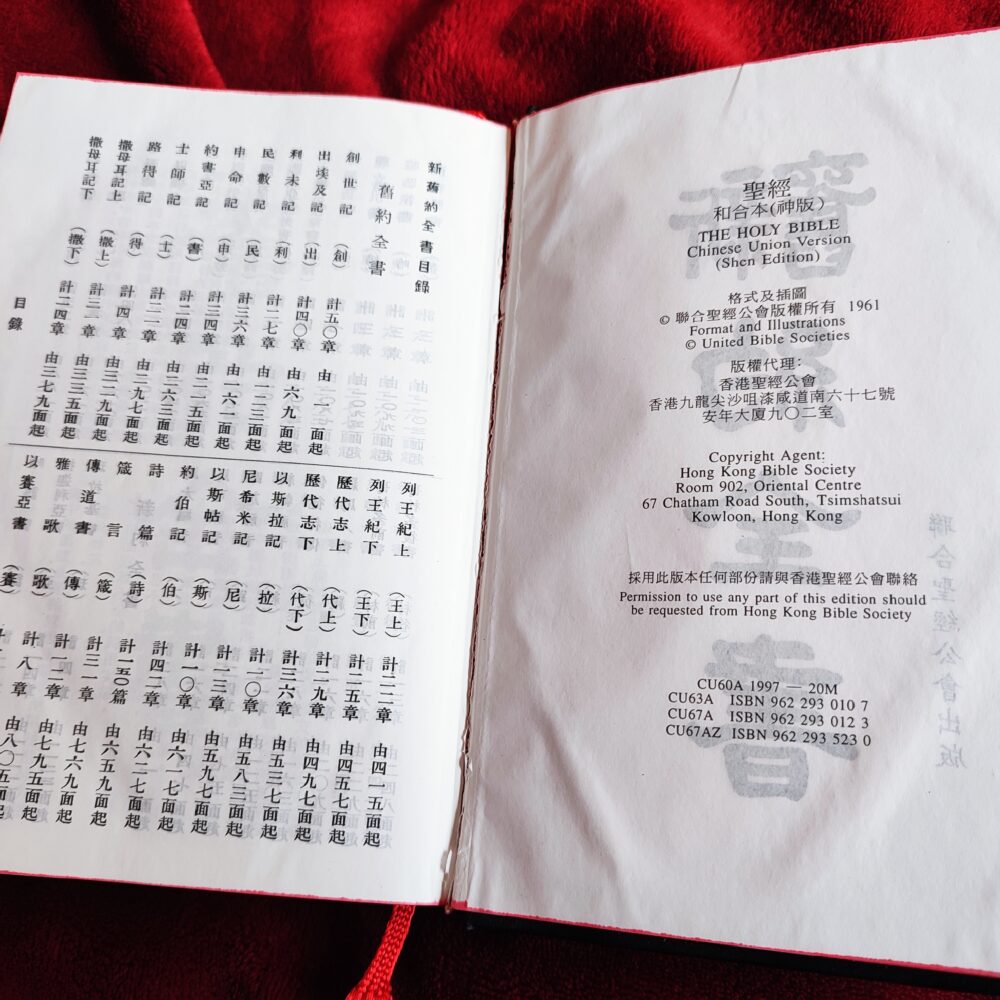 聖經
和合本(神版)
THE HOLY BIBLE
Chinese Union Version
(Shen Edition)
格式及插圖
© 聯合聖經公會版權所有 1961
Format and Illustrations
© United Bible Societies
版權代理:
香港聖經公會
香港九龍尖沙咀漆咸道南六十七號
安年大廈九〇二室
Copyright Agent:
Hong Kong Bible Society
Room 902, Oriental Centre
67 Chatham Road South, Tsimshatsui
Kowloon, Hong Kong
採用此版本任何部份請與香港聖經公會聯絡
Permission to use any part of this edition should
be requested from Hong Kong Bible Society
CU60A 1997 — 20M
CU63A ISBN 962 293 010 7
CU67A ISBN 962 293 012 3
CU67AZ ISBN 962 293 523 0
新舊約全書目錄
舊約全書
創世記 (創) 計五〇章 由一面起
出埃及記 (出) 計四〇章 由六九面起
利未記 (利) 計二七章 由一二三面起
民數記 (民) 計三六章 由一六一面起
申命記 (申) 計三四章 由二一五面起
約書亞記 (書) 計二四章 由二六三面起
士師記 (士) 計二一章 由二九七面起
路得記 (得) 計四章 由三三一面起
撒母耳記上 (撒上) 計三一章 由三三七面起
撒母耳記下 (撒下) 計二四章 由三七九面起
列王紀上 (王上) 計二二章 由四一五面起
列王紀下 (王下) 計二五章 由四五七面起
歷代志上 (代上) 計二九章 由四九七面起
歷代志下 (代下) 計三六章 由五三七面起
以斯拉記 (拉) 計一〇章 由五八三面起
尼希米記 (尼) 計一三章 由五九七面起
以斯帖記 (斯) 計一〇章 由六一七面起
約伯記 (伯) 計四二章 由六二七面起
詩篇 (詩) 計一五〇篇 由六五九面起
箴言 (箴) 計三一章 由七六九面起
傳道書 (傳) 計一二章 由七九五面起
雅歌 (歌) 計八章 由八〇五面起
以賽亞書 (賽)
目錄